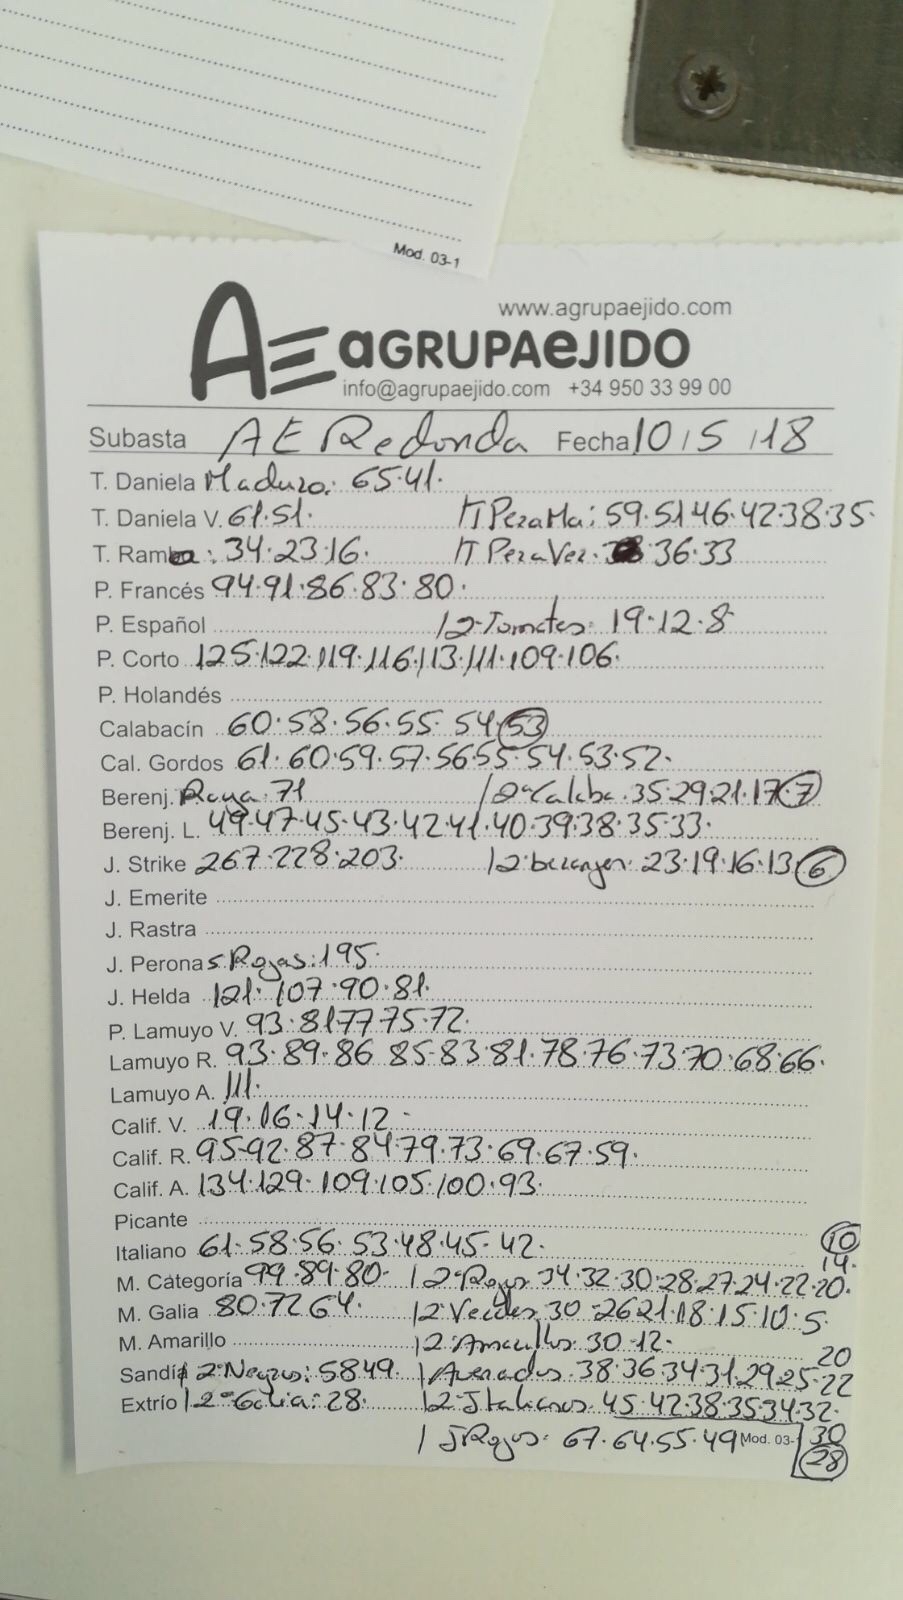 Mod. 03-1
www.agrupaejido.com
AE aGRUPAeJIDO
info@agrupaejido.com +34 950 33 99 00
Subasta AE Redonda Fecha 10/5/18
T. Daniela Maduro: 65.41.
T. Daniela V. 61.51. / T Pera Ma: 59.51 46.42.38.35.
T. Rama: 34.23.16. / T Pera Ver. 36.33
P. Francés 94.91.86.83.80.
P. Español / 2ª Tomates: 19.12.8
P. Corto 125.122.119.116.113.111.109.106.
P. Holandés
Calabacín 60.58.56.55.54.53
Cal. Gordos 61.60.59.57.56.55.54.53.52.
Berenj. Raya 71 / 2ª Calaba. 35.29.21.17.7
Berenj. L. 49.47.45.43.42.41.40.39.38.35.33.
J. Strike 267.228.203. / 2ª berenjen. 23.19.16.13.6
J. Emerite
J. Rastra
J. Peronas Rojas: 195.
J. Helda 121.107.90.81.
P. Lamuyo V. 93.81.77.75.72.
Lamuyo R. 93.89.86.85.83.81.78.76.73.70.68.66.
Lamuyo A. 111.
Calif. V. 19.16.14.12.
Calif. R. 95.92.87.84.79.73.69.67.59.
Calif. A. 134.129.109.105.100.93.
Picante
Italiano 61.58.56.53.48.45.42. 10
14.
M. Categoría 99.89.80. / 2ª Rojos 34.32.30.28.27.24.22.20.
M. Galia 80.72.64. / 2ª Verdes 30.26.21.18.15.10.5
M. Amarillo / 2ª Amarillos 30.12.
20
Sandía / 2ª Negras: 58.49. / Asurados 38.36.34.31.29.25.22
Extrío / 2ª Galia: 28. / 2ª Italianos 45.42.38.35.34.32.
/ J Rojos: 67.64.55.49 Mod. 03-1 30
28